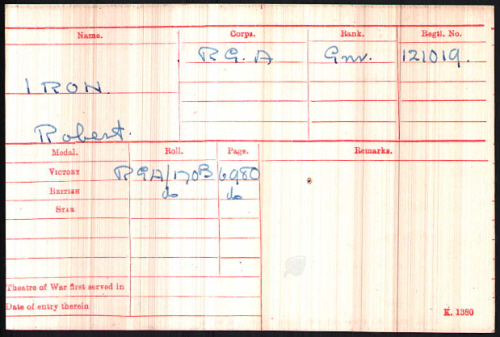 Name. Corps. Rank. Regtl. No.
R.G.A Gnr. 121019.
IRON.
Robert.
Medal. Roll. Page. Remarks.
VICTORY RGA/170B 6980
BRITISH do do
STAR
Theatre of War first served in
Date of entry therein
K. 1380